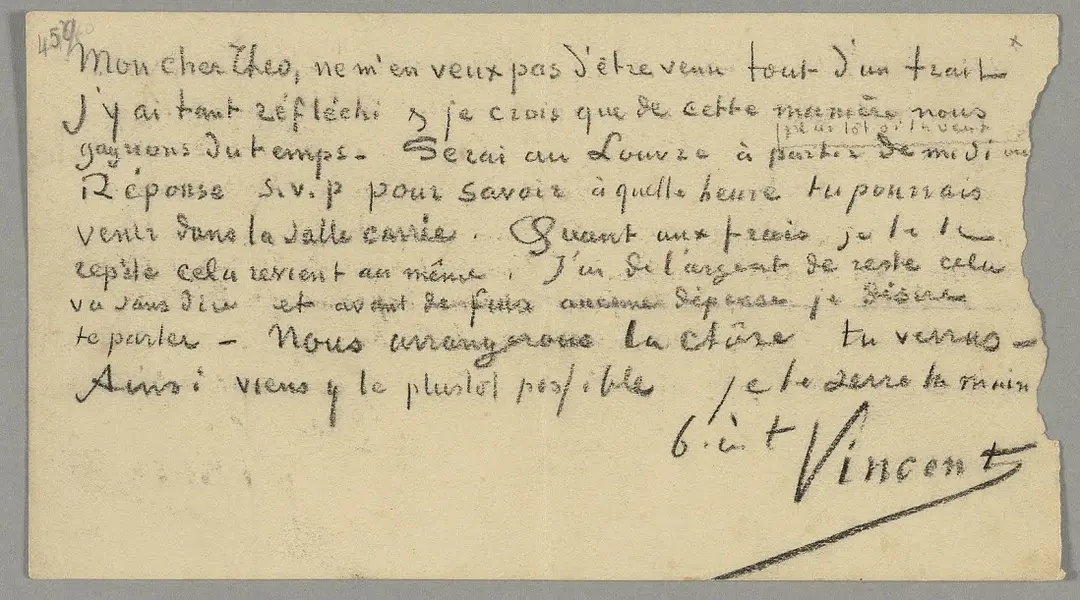 459
Mon cher Theo, ne m'en veux pas d'être venu tout d'un trait
J'y ai tant réfléchi & je crois que de cette manière nous
gagnons du temps. Serai au Louvre à partir de midi ou
plus tôt si tu veux
Réponse s.v.p pour savoir à quelle heure tu pourrais
venir dans la Salle carrée. Quant aux frais je te le
repète cela revient au même. J'ai de l'argent de reste cela
va sans dire et avant de faire aucune dépense je désire
te parler – Nous arrangerons la chôse tu verras –
Ainsi viens y le plustot possible je te serre la main
b. à t Vincent